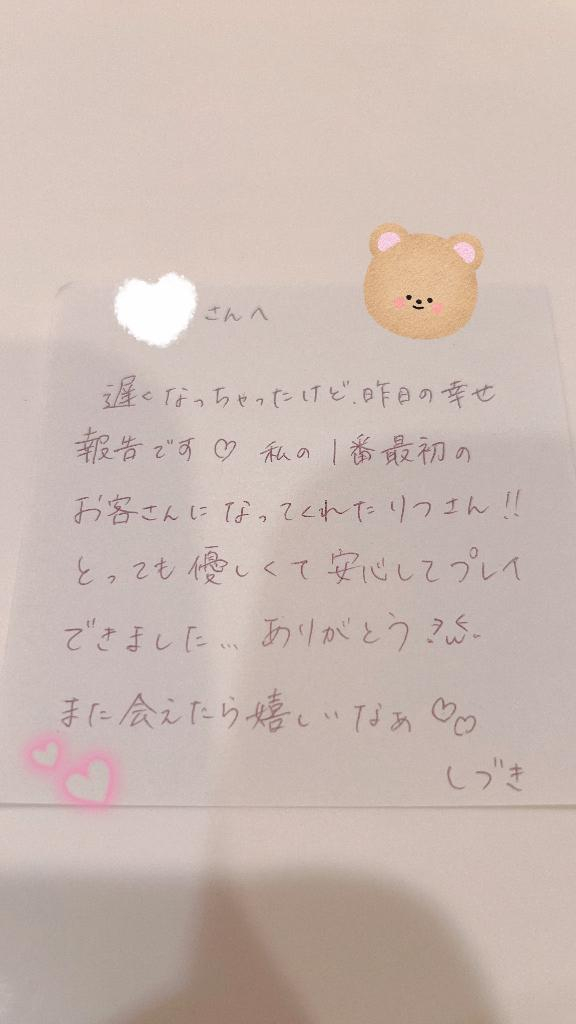 さんへ
遅くなっちゃったけど、昨日の幸せ
報告です♡ 私の1番最初の
お客さんになってくれたりつさん!!
とっても優しくて安心してプレイ
できました... ありがとう
また会えたら嬉しいなぁ♡♡
しづき